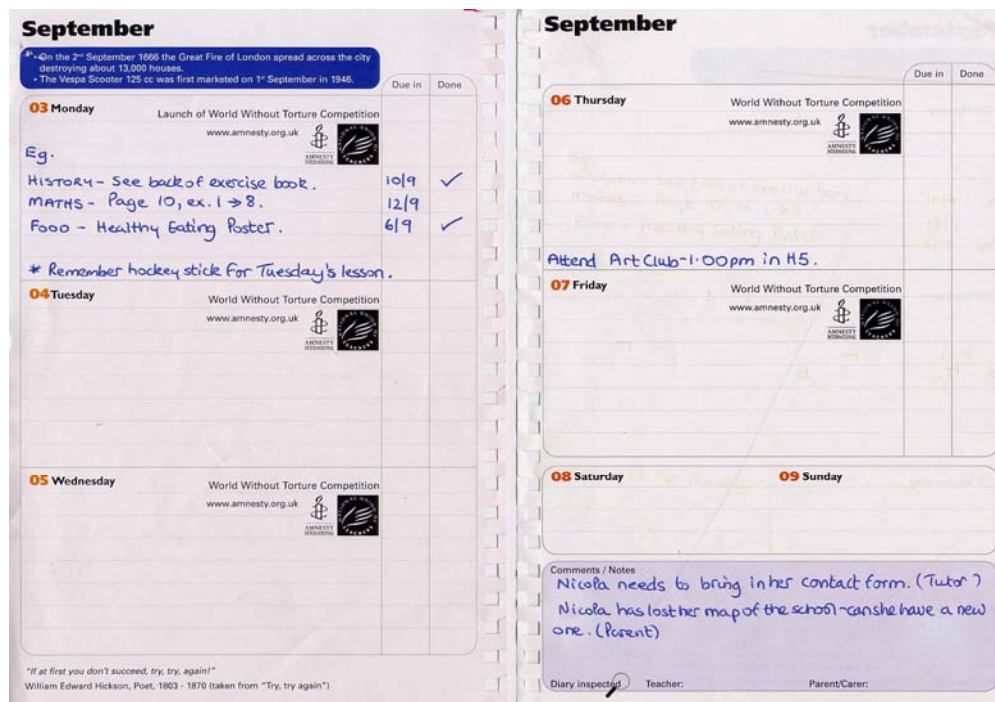 September
• On the 2nd September 1666 the Great Fire of London spread across the city
destroying about 13,000 houses.
• The Vespa Scooter 125 cc was first marketed on 1st September in 1946.
Due in Done
03 Monday
Launch of World Without Torture Competition
www.amnesty.org.uk
AMNESTY
INTERNATIONAL
NATIONAL UNION OF
TEACHERS
Eg.
HISTORY - See back of exercise book. 10/9 ✓
MATHS - Page 10, ex. 1 → 8. 12/9
FOOD - Healthy Eating Poster. 6/9 ✓
* Remember hockey stick for Tuesday's lesson.
04 Tuesday
World Without Torture Competition
www.amnesty.org.uk
AMNESTY
INTERNATIONAL
NATIONAL UNION OF
TEACHERS
05 Wednesday
World Without Torture Competition
www.amnesty.org.uk
AMNESTY
INTERNATIONAL
NATIONAL UNION OF
TEACHERS
"If at first you don't succeed, try, try, again!"
William Edward Hickson, Poet, 1803 - 1870 (taken from "Try, try again")
September
Due in Done
06 Thursday
World Without Torture Competition
www.amnesty.org.uk
AMNESTY
INTERNATIONAL
NATIONAL UNION OF
TEACHERS
Attend Art Club-1.00pm in H5.
07 Friday
World Without Torture Competition
www.amnesty.org.uk
AMNESTY
INTERNATIONAL
NATIONAL UNION OF
TEACHERS
08 Saturday
09 Sunday
Comments / Notes
Nicola needs to bring in her contact form. (Tutor)
Nicola has lost her map of the school - can she have a new
one. (Parent)
Diary inspected Teacher: Parent/Carer: